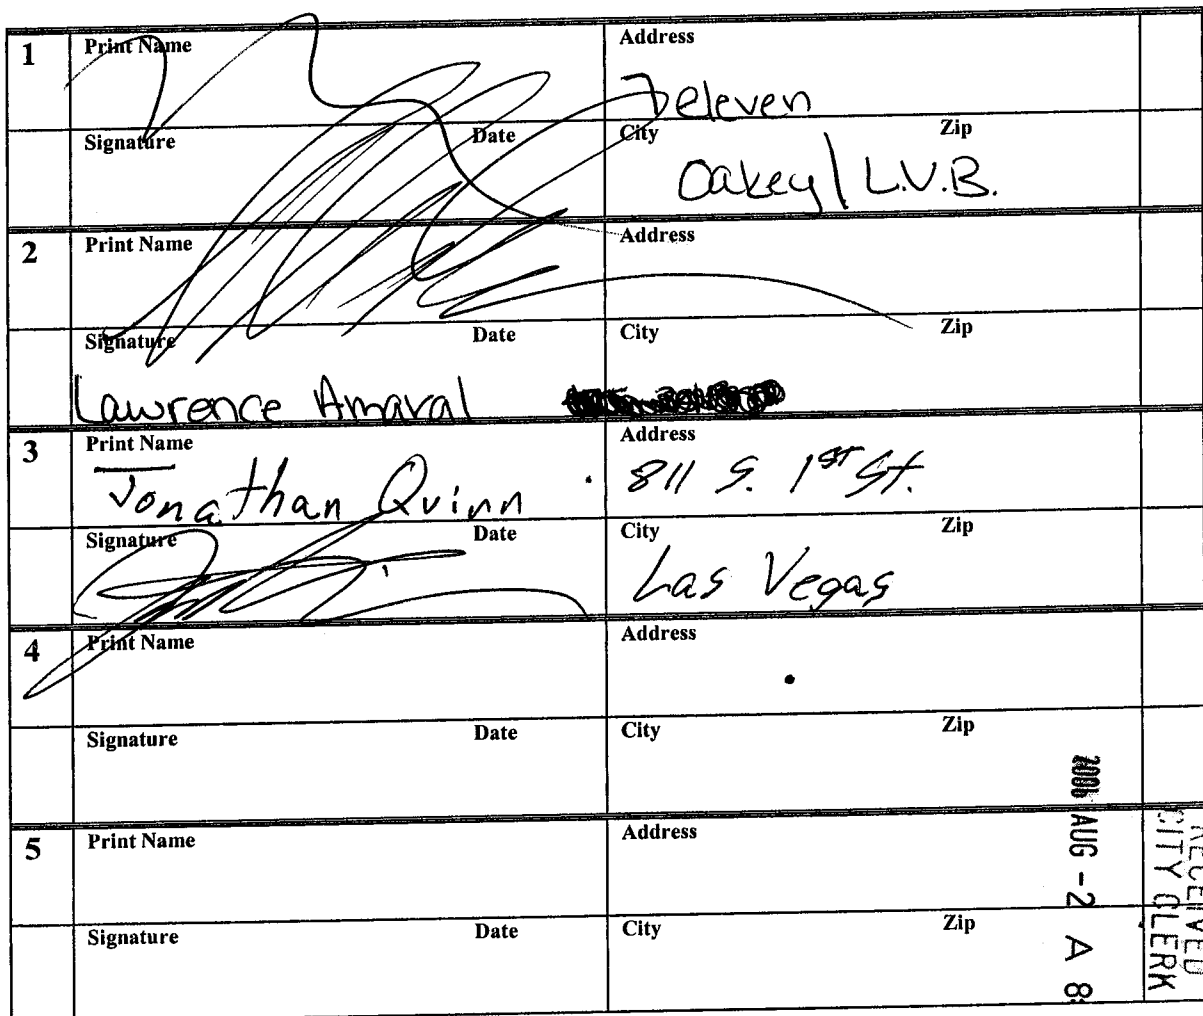 1 Print Name Address
7 eleven
Signature Date City Zip
Oakey / L.V.B.
2 Print Name Address
Signature Date City Zip
Lawrence Amaral
3 Print Name Address
Jonathan Quinn 811 S. 1st St.
Signature Date City Zip
Las Vegas
4 Print Name Address
Signature Date City Zip
5 Print Name Address
Signature Date City Zip
2006 AUG -2 A 8:
RECEIVED
CITY CLERK